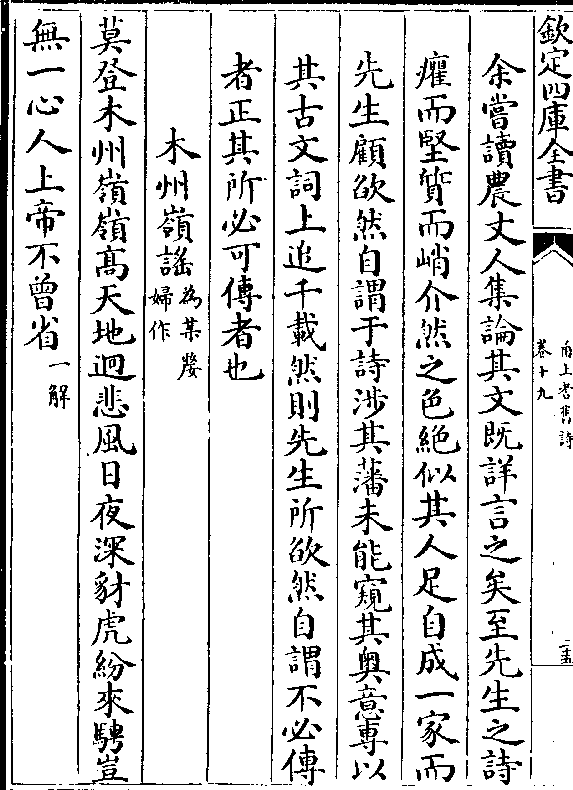 欽定四庫全書
甬上耆舊詩
卷十九
二五
余嘗讀農丈人集論其文既詳言之矣至先生之詩
癯而堅質而峭介然之色絶似其人足自成一家而
先生顧欿然自謂于詩涉其藩未能窺其奥意專以
其古文詞上追千載然則先生所欿然自謂不必傳
者正其所必可傳者也
木州嶺謡為某嫠婦作
莫登木州嶺嶺髙天地迥悲風日夜深豺虎紛來騁豈
無一心人上帝不曾省一解